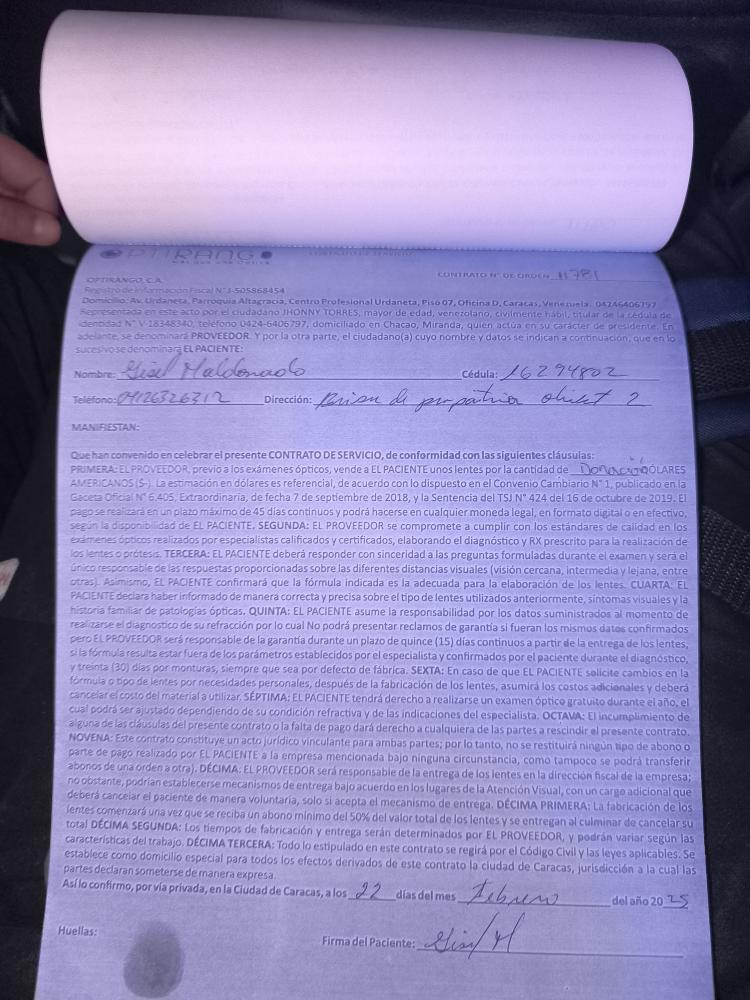 OPTIRANGO
CONTRATO DE SERVICIO
CONTRATO N° DE ORDEN 11781
OPTIRANGO, C.A.
Registro de Información Fiscal N° J-505868454
Domicilio: Av. Urdaneta, Parroquia Altagracia, Centro Profesional Urdaneta, Piso 07, Oficina D, Caracas, Venezuela. 04246406797
Representada en este acto por el ciudadano JHONNY TORRES, mayor de edad, venezolano, civilmente hábil, titular de la cédula de
identidad N° V-18348340, teléfono 0424-6406797, domiciliado en Chacao, Miranda, quien actúa en su carácter de presidente. En
adelante, se denominará PROVEEDOR. Y por la otra parte, el ciudadano(a) cuyo nombre y datos se indican a continuación, que en lo
sucesivo se denominará EL PACIENTE:
Nombre: Gisel Maldonado Cédula: 16294802
Teléfono: 04126326312 Dirección: 2
MANIFIESTAN:
Que han convenido en celebrar el presente CONTRATO DE SERVICIO, de conformidad con las siguientes cláusulas:
PRIMERA: EL PROVEEDOR, previo a los exámenes ópticos, vende a EL PACIENTE unos lentes por la cantidad de Donación DÓLARES
AMERICANOS ($-). La estimación en dólares es referencial, de acuerdo con lo dispuesto en el Convenio Cambiario N° 1, publicado en la
Gaceta Oficial N° 6.405, Extraordinaria, de fecha 7 de septiembre de 2018, y la Sentencia del TSJ N° 424 del 16 de octubre de 2019. El
pago se realizará en un plazo máximo de 45 días continuos y podrá hacerse en cualquier moneda legal, en formato digital o en efectivo,
según la disponibilidad de EL PACIENTE. SEGUNDA: EL PROVEEDOR se compromete a cumplir con los estándares de calidad en los
exámenes ópticos realizados por especialistas calificados y certificados, elaborando el diagnóstico y RX prescrito para la realización de
los lentes o prótesis. TERCERA: EL PACIENTE deberá responder con sinceridad a las preguntas formuladas durante el examen y será el
único responsable de las respuestas proporcionadas sobre las diferentes distancias visuales (visión cercana, intermedia y lejana, entre
otras). Asimismo, EL PACIENTE confirmará que la fórmula indicada es la adecuada para la elaboración de los lentes. CUARTA: EL
PACIENTE declara haber informado de manera correcta y precisa sobre el tipo de lentes utilizados anteriormente, síntomas visuales y la
historia familiar de patologías ópticas. QUINTA: EL PACIENTE asume la responsabilidad por los datos suministrados al momento de
realizarse el diagnostico de su refracción por lo cual No podrá presentar reclamos de garantía si fueran los mismos datos confirmados
pero EL PROVEEDOR será responsable de la garantía durante un plazo de quince (15) días continuos a partir de la entrega de los lentes,
si la fórmula resulta estar fuera de los parámetros establecidos por el especialista y confirmados por el paciente durante el diagnóstico,
y treinta (30) días por monturas, siempre que sea por defecto de fábrica. SEXTA: En caso de que EL PACIENTE solicite cambios en la
fórmula o tipo de lentes por necesidades personales, después de la fabricación de los lentes, asumirá los costos adicionales y deberá
cancelar el costo del material a utilizar. SÉPTIMA: EL PACIENTE tendrá derecho a realizarse un examen óptico gratuito durante el año, el
cual podrá ser ajustado dependiendo de su condición refractiva y de las indicaciones del especialista. OCTAVA: El incumplimiento de
alguna de las cláusulas del presente contrato o la falta de pago dará derecho a cualquiera de las partes a rescindir el presente contrato.
NOVENA: Este contrato constituye un acto jurídico vinculante para ambas partes; por lo tanto, no se restituirá ningún tipo de abono o
parte de pago realizado por EL PACIENTE a la empresa mencionada bajo ninguna circunstancia, como tampoco se podrá transferir
abonos de una orden a otra). DÉCIMA: EL PROVEEDOR será responsable de la entrega de los lentes en la dirección fiscal de la empresa;
no obstante, podrían establecerse mecanismos de entrega bajo acuerdo en los lugares de la Atención Visual, con un cargo adicional que
deberá cancelar el paciente de manera voluntaria, solo si acepta el mecanismo de entrega. DÉCIMA PRIMERA: La fabricación de los
lentes comenzará una vez que se reciba un abono mínimo del 50% del valor total de los lentes y se entregan al culminar de cancelar su
total DÉCIMA SEGUNDA: Los tiempos de fabricación y entrega serán determinados por EL PROVEEDOR, y podrán variar según las
características del trabajo. DÉCIMA TERCERA: Todo lo estipulado en este contrato se regirá por el Código Civil y las leyes aplicables. Se
establece como domicilio especial para todos los efectos derivados de este contrato la ciudad de Caracas, jurisdicción a la cual las
partes declaran someterse de manera expresa.
Así lo confirmo, por vía privada, en la Ciudad de Caracas, a los 22 días del mes Febrero del año 2025
Huellas:
Firma del Paciente: Gisel M